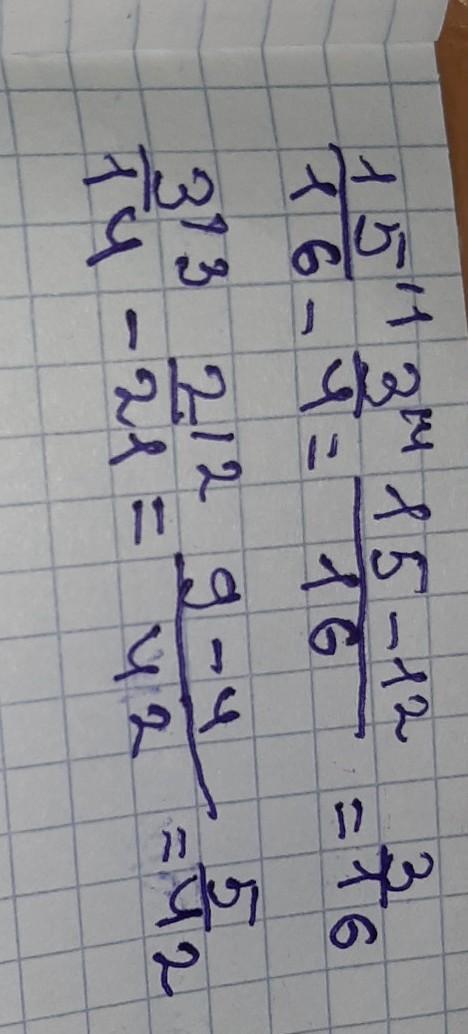 15/16 '1 - 3/4 '4 = 15-12/16 = 3/16
3/14 '3 - 2/21 '2 = 9-4/42 = 5/42